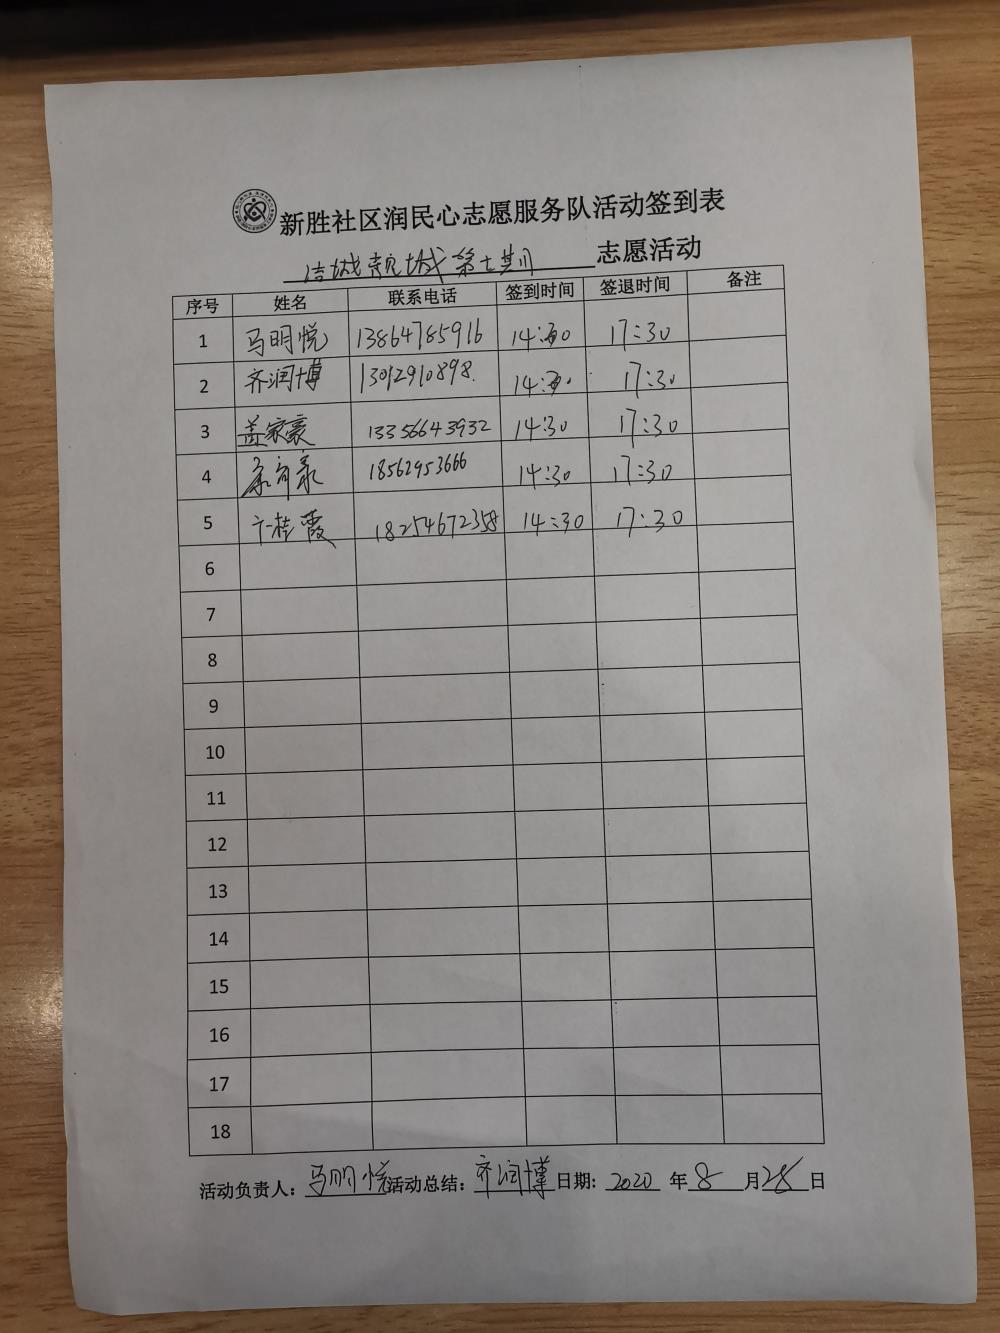 新胜社区润民心志愿服务队活动签到表
洁城靓城第七期 志愿活动
序号 姓名 联系电话 签到时间 签退时间 备注
1 马明悦 13864785916 14:30 17:30
2 齐润博 13012910898 14:30 17:30
3 盖家豪 13356643932 14:30 17:30
4 18562953666 14:30 17:30
5 卞桂霞 18254672358 14:30 17:30
6
7
8
9
10
11
12
13
14
15
16
17
18
活动负责人: 马明悦 活动总结: 齐润博 日期: 2020 年 8 月 28 日